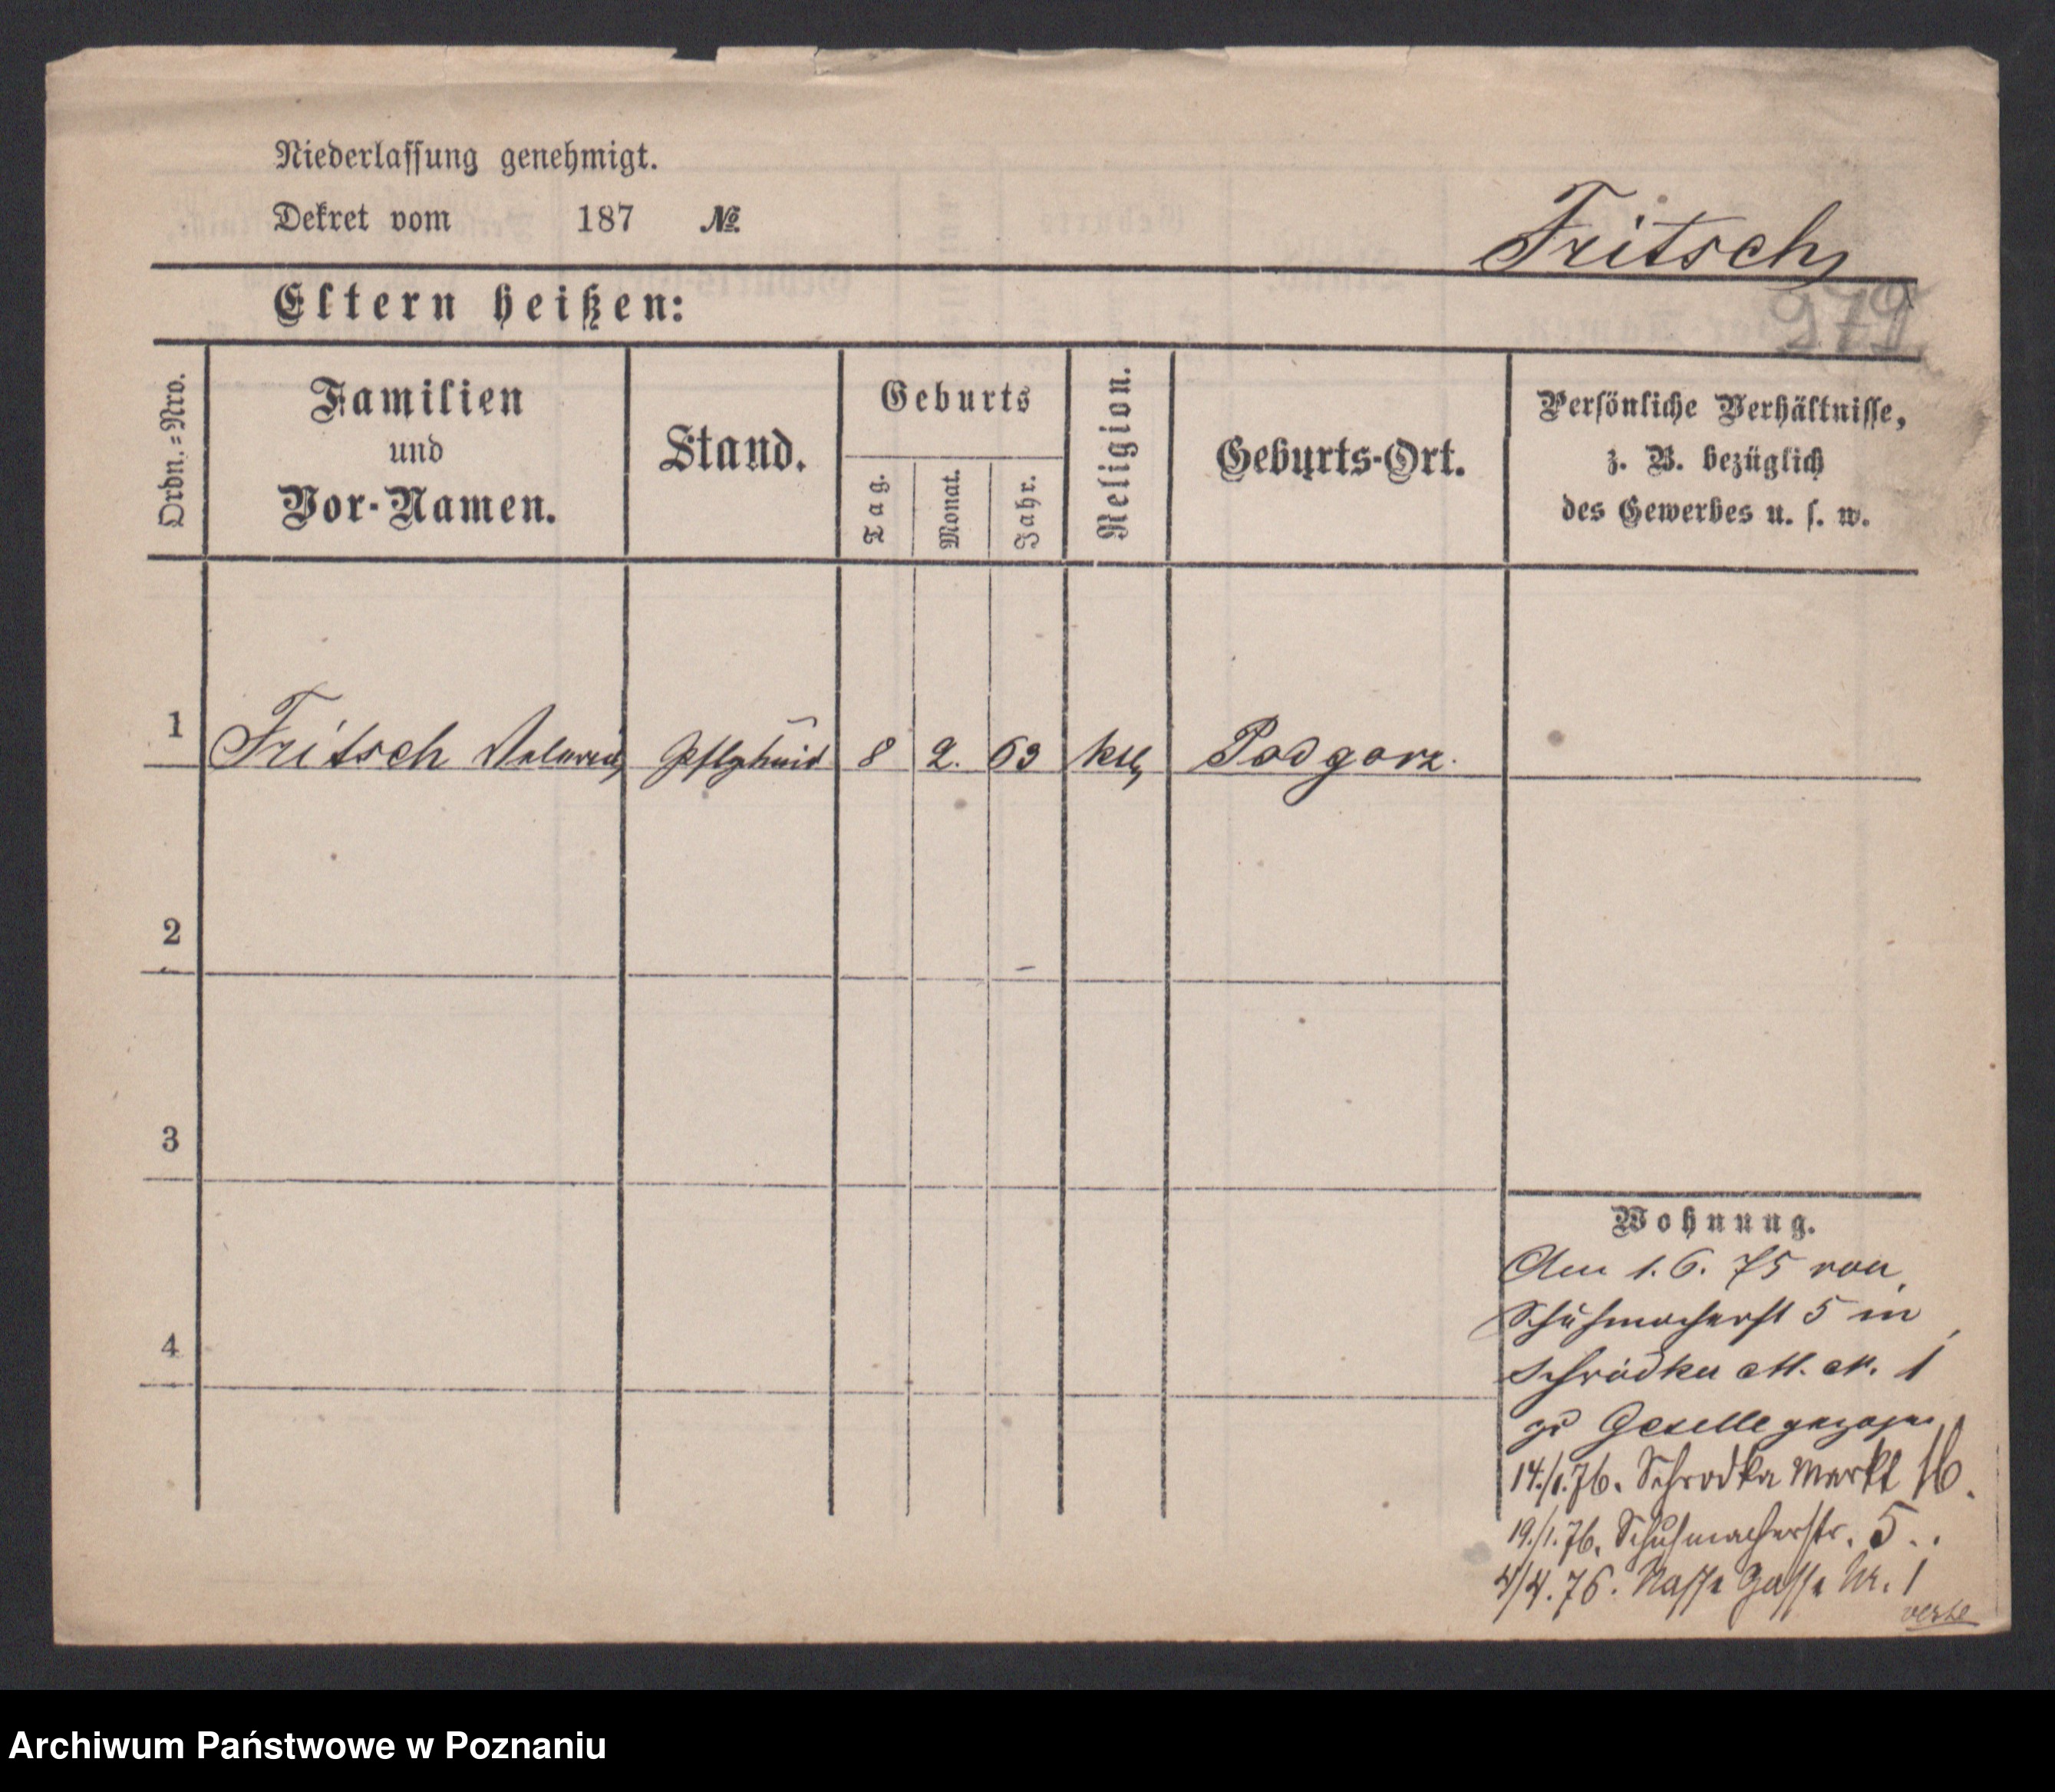 Niederlassung genehmigt.
Dekret vom 187 №
Fritsch
Eltern heißen:
979
Ordn.=Nro.
Familien
und
Vor-Namen.
Stand.
Geburts
Tag.
Monat.
Jahr.
Religion.
Geburts-Ort.
Persönliche Verhältnisse,
z. B. bezüglich
des Gewerbes u. s. w.
1 Fritsch 8 2. 63 kth Podgorz.
2
3
4
Wohnung.
Am 1. 6. 75 von
Schuhmacherst 5 in
Schrodka M. 1
zu Geselle gezogen
14./1.76. Schrodka Markt 16.
19./1.76. Schuhmacherstr. 5..
4/4.76. Nasse Gasse Nr. 1
verte
Archiwum Państwowe w Poznaniu